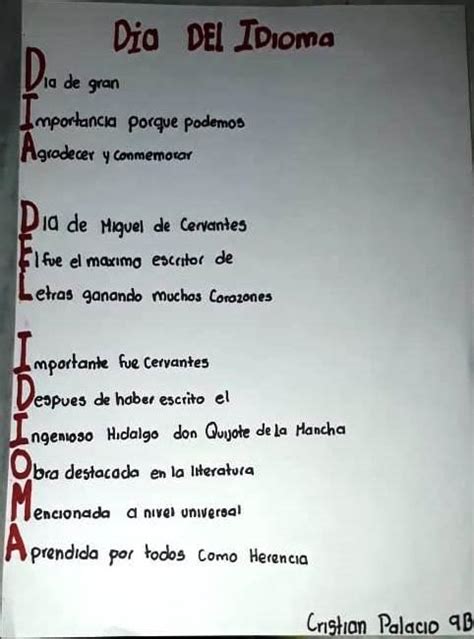 Dia DEl IDioma
Dia de gran
Importancia porque podemos
Agradecer y conmemorar
Dia de Miguel de Cervantes
El fue el maximo escritor de
Letras ganando muchos Corazones
Importante fue Cervantes
Despues de haber escrito el
Ingenioso Hidalgo don Quijote de la Mancha
Obra destacada en la literatura
Mencionada a nivel universal
Aprendida por todos como Herencia
Cristian Palacio 9B